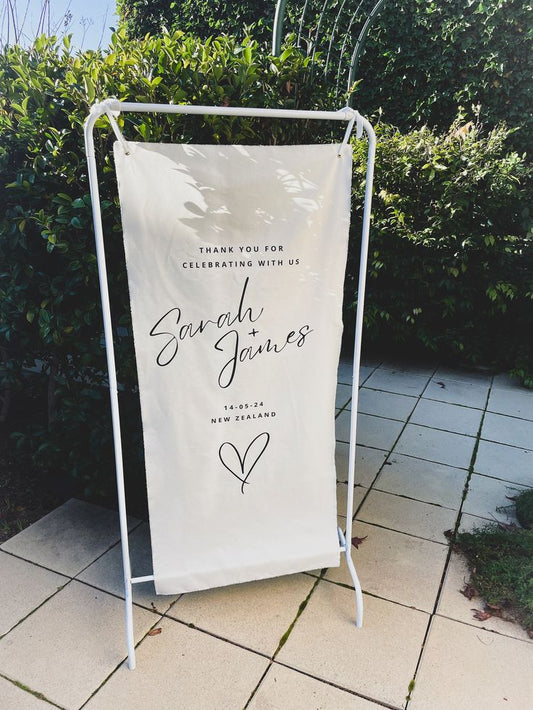 THANK YOU FOR
CELEBRATING WITH US
Sarah
+
James
14-05-24
NEW ZEALAND